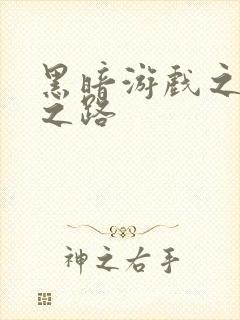 黑暗游戏之
之路
神之右手